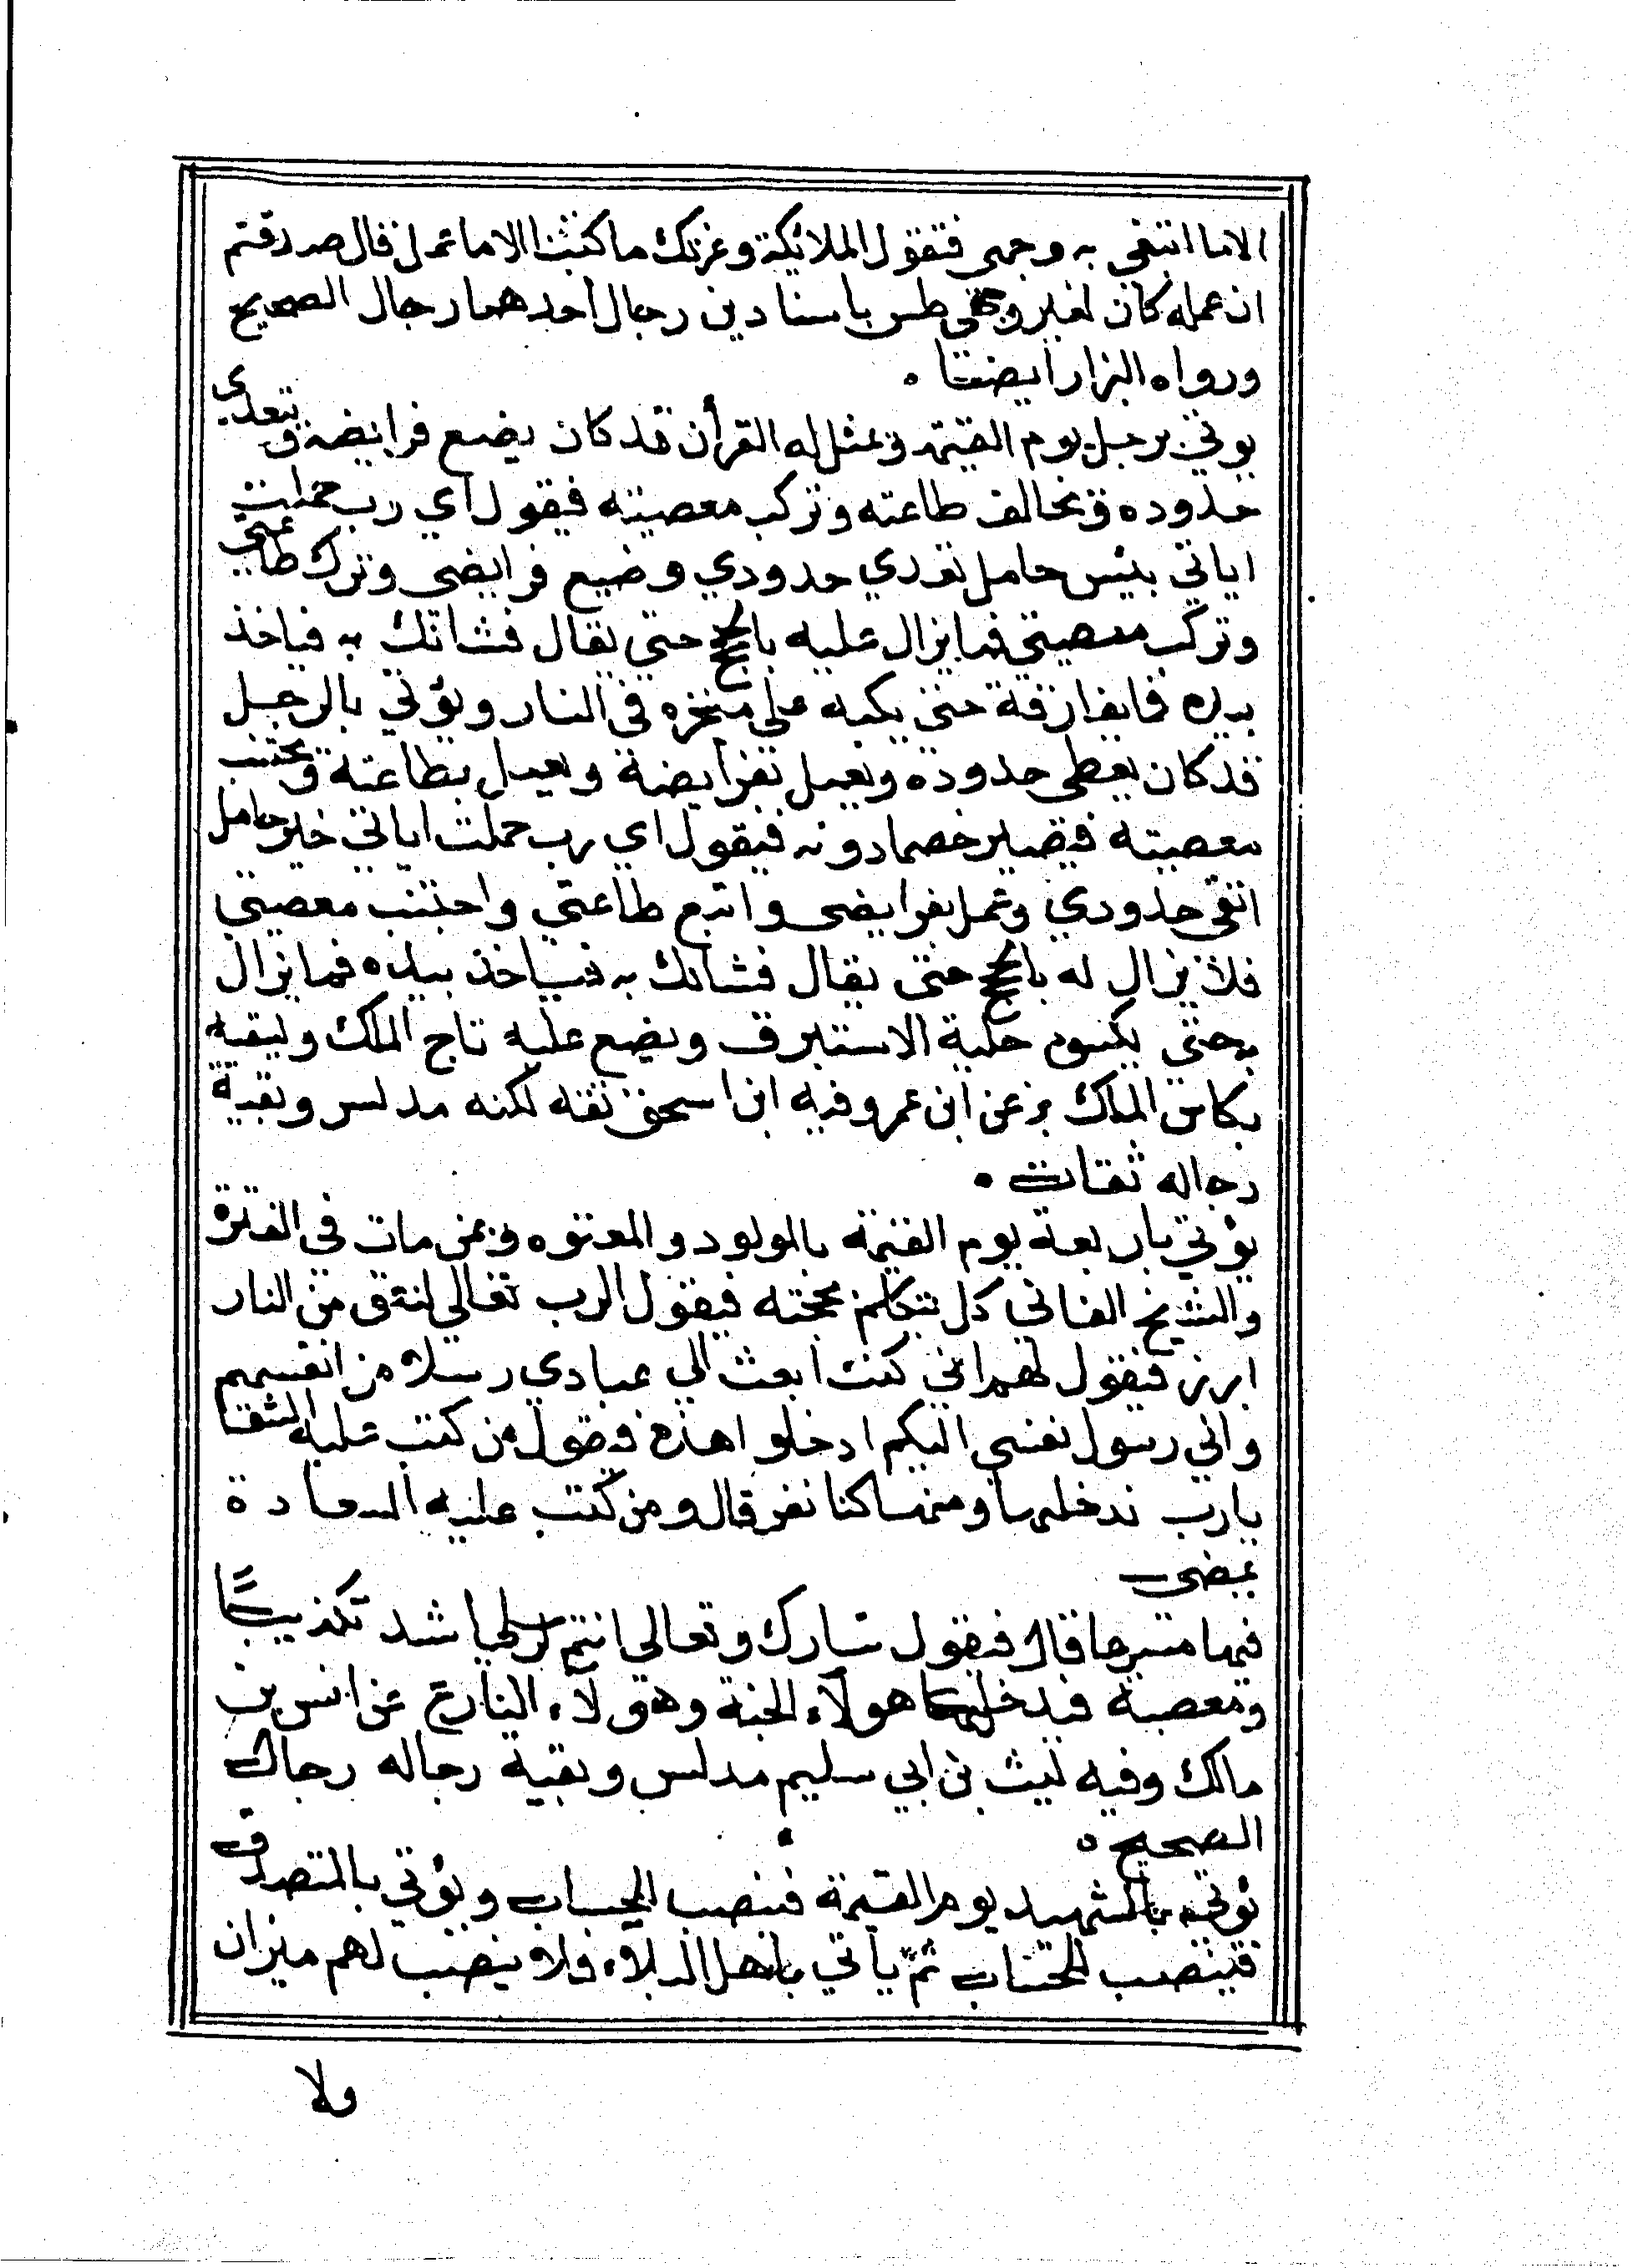 الاما ابتغي به وجهي فتقول الملائكة وعزتك ما كتبنا الا ما عمل قال صدقتم
ان عمله كان لغير وجهي طس باسنادين رجال احدهما رجال الصحيح
ورواه البزار ايضا ٠
يوتي برجل يوم القيمة ويمثل له القرأن قد كان يضيع فرايضه ويتعدي
حدوده ويخالف طاعته وتركب معصيته فيقول اي رب حملت
اياتي بئس حامل تعدي حدودي وضيع فرايضي وترك طاعتي
وتركب معصيتي فما يزال عليه بالحجج حتي يقال فشانك به فياخذ
بيده فما يفارقه حتي يكبه علي منخره في النار ويؤتي بالرجل
قد كان يعطي حدوده ويعمل بفرايضه ويعمل بطاعته ويجتنب
معصيته فيصير خصما دونه فيقول اي رب حملت اياتي خير حامل
اتقي حدودي وعمل بفرايضي واتبع طاعتي واجتنب معصيتي
فلا يزال له بالحجج حتي يقال فشانك به فياخذ بيده فما يزال
به حتي يكسوه حلية الاستبرق ويضع عليه تاج الملك ويسقيه
بكاس الملك بز عن ابن عمر وفيه ابن اسحق ثقه لكنه مدلس وبقية
رجاله ثقات ٠
يؤتي باربعة يوم القيمة بالمولود والمعتوه وبمن مات في الفترة
والشيخ الفاني كل يتكلم بحجته فيقول الرب تعالي لعنق من النار
ابرز فيقول لهم اني كنت ابعث الي عبادي رسلا من انفسهم
واني رسول نفسي اليكم ادخلوا هذه فيقول من كتب عليه الشقا
يارب ندخلها ومنها كنا نفر قال ومن كتب عليه السعادة
يمضي
فيها مسرعا قال فيقول تبارك وتعالي انتم لرسلي اشد تكذيبًا
ومعصية فيدخل هولآء الجنة وهولآء النار ع عن انس بن
مالك وفيه ليث بن ابي سليم مدلس وبقية رجاله رجال
الصحيح ٥
يؤتي بالشهيد يوم القيمة فينصب للحساب ويؤتي بالمتصدق
فينصب للحساب ثمّ يأتي باهل البلاء ولا ينصب لهم ميزان
ولا